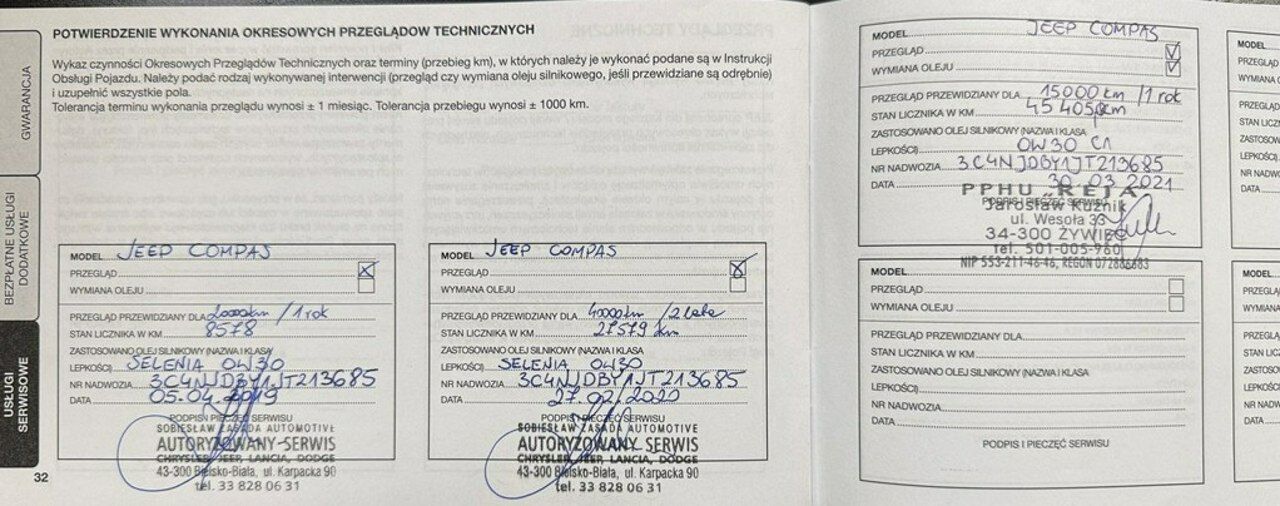 GWARANCJA
BEZPŁATNE USŁUGI
DODATKOWE
USŁUGI
SERWISOWE
POTWIERDZENIE WYKONANIA OKRESOWYCH PRZEGLĄDÓW TECHNICZNYCH
Wykaz czynności Okresowych Przeglądów Technicznych oraz terminy (przebieg km), w których należy je wykonać podane są w Instrukcji
Obsługi Pojazdu. Należy podać rodzaj wykonywanej interwencji (przegląd czy wymiana oleju silnikowego, jeśli przewidziane są odrębnie)
i uzupełnić wszystkie pola.
Tolerancja terminu wykonania przeglądu wynosi ± 1 miesiąc. Tolerancja przebiegu wynosi ± 1000 km.
MODEL JEEP COMPAS
PRZEGLĄD
WYMIANA OLEJU
PRZEGLĄD PRZEWIDZIANY DLA 20000km /1 rok
STAN LICZNIKA W KM 8578
ZASTOSOWANO OLEJ SILNIKOWY (NAZWA I KLASA
LEPKOŚCI) SELENIA 0W30
NR NADWOZIA 3C4NJDBY1JT213685
DATA 05.04.2019
PODPIS I PIECZĘĆ SERWISU
SOBIESŁAW ZASADA AUTOMOTIVE
AUTORYZOWANY SERWIS
CHRYSLER, JEEP, LANCIA, DODGE
43-300 Bielsko-Biała, ul. Karpacka 90
tel. 33 828 06 31
32
MODEL JEEP COMPAS
PRZEGLĄD
WYMIANA OLEJU
PRZEGLĄD PRZEWIDZIANY DLA 40000km /2 lata
STAN LICZNIKA W KM 27579 km
ZASTOSOWANO OLEJ SILNIKOWY (NAZWA I KLASA
LEPKOŚCI) SELENIA 0W30
NR NADWOZIA 3C4NJDBY1JT213685
DATA 27.02.2020
PODPIS I PIECZĘĆ SERWISU
SOBIESŁAW ZASADA AUTOMOTIVE
AUTORYZOWANY SERWIS
CHRYSLER, JEEP, LANCIA, DODGE
43-300 Bielsko-Biała, ul. Karpacka 90
tel. 33 828 06 31
MODEL JEEP COMPAS
PRZEGLĄD
WYMIANA OLEJU
PRZEGLĄD PRZEWIDZIANY DLA 15000km /1 rok
STAN LICZNIKA W KM 45405km
ZASTOSOWANO OLEJ SILNIKOWY (NAZWA I KLASA
LEPKOŚCI) 0W30 C1
NR NADWOZIA 3C4NJDBY1JT213685
DATA 30 03 2021
PPHU "REJA"
Jarosław Kuźnik
ul. Wesoła 33
34-300 ŻYWIEC
tel. 501-005-960
NIP 553-211-46-46, REGON 072886683
MODEL
PRZEGLĄD
WYMIANA OLEJU
PRZEGLĄD PRZEWIDZIANY DLA
STAN LICZNIKA W KM
ZASTOSOWANO OLEJ SILNIKOWY (NAZWA I KLASA
LEPKOŚCI)
NR NADWOZIA
DATA
PODPIS I PIECZĘĆ SERWISU
MODEL
PRZEGLĄ
WYMIANA
PRZEGLĄD
STAN LICZ
ZASTOSOW
LEPKOŚCI
NR NADW
DATA
MODEL
PRZEGLĄ
WYMIAN
PRZEGLĄ
STAN LIC
ZASTOSO
LEPKOŚC
NR NADW
DATA